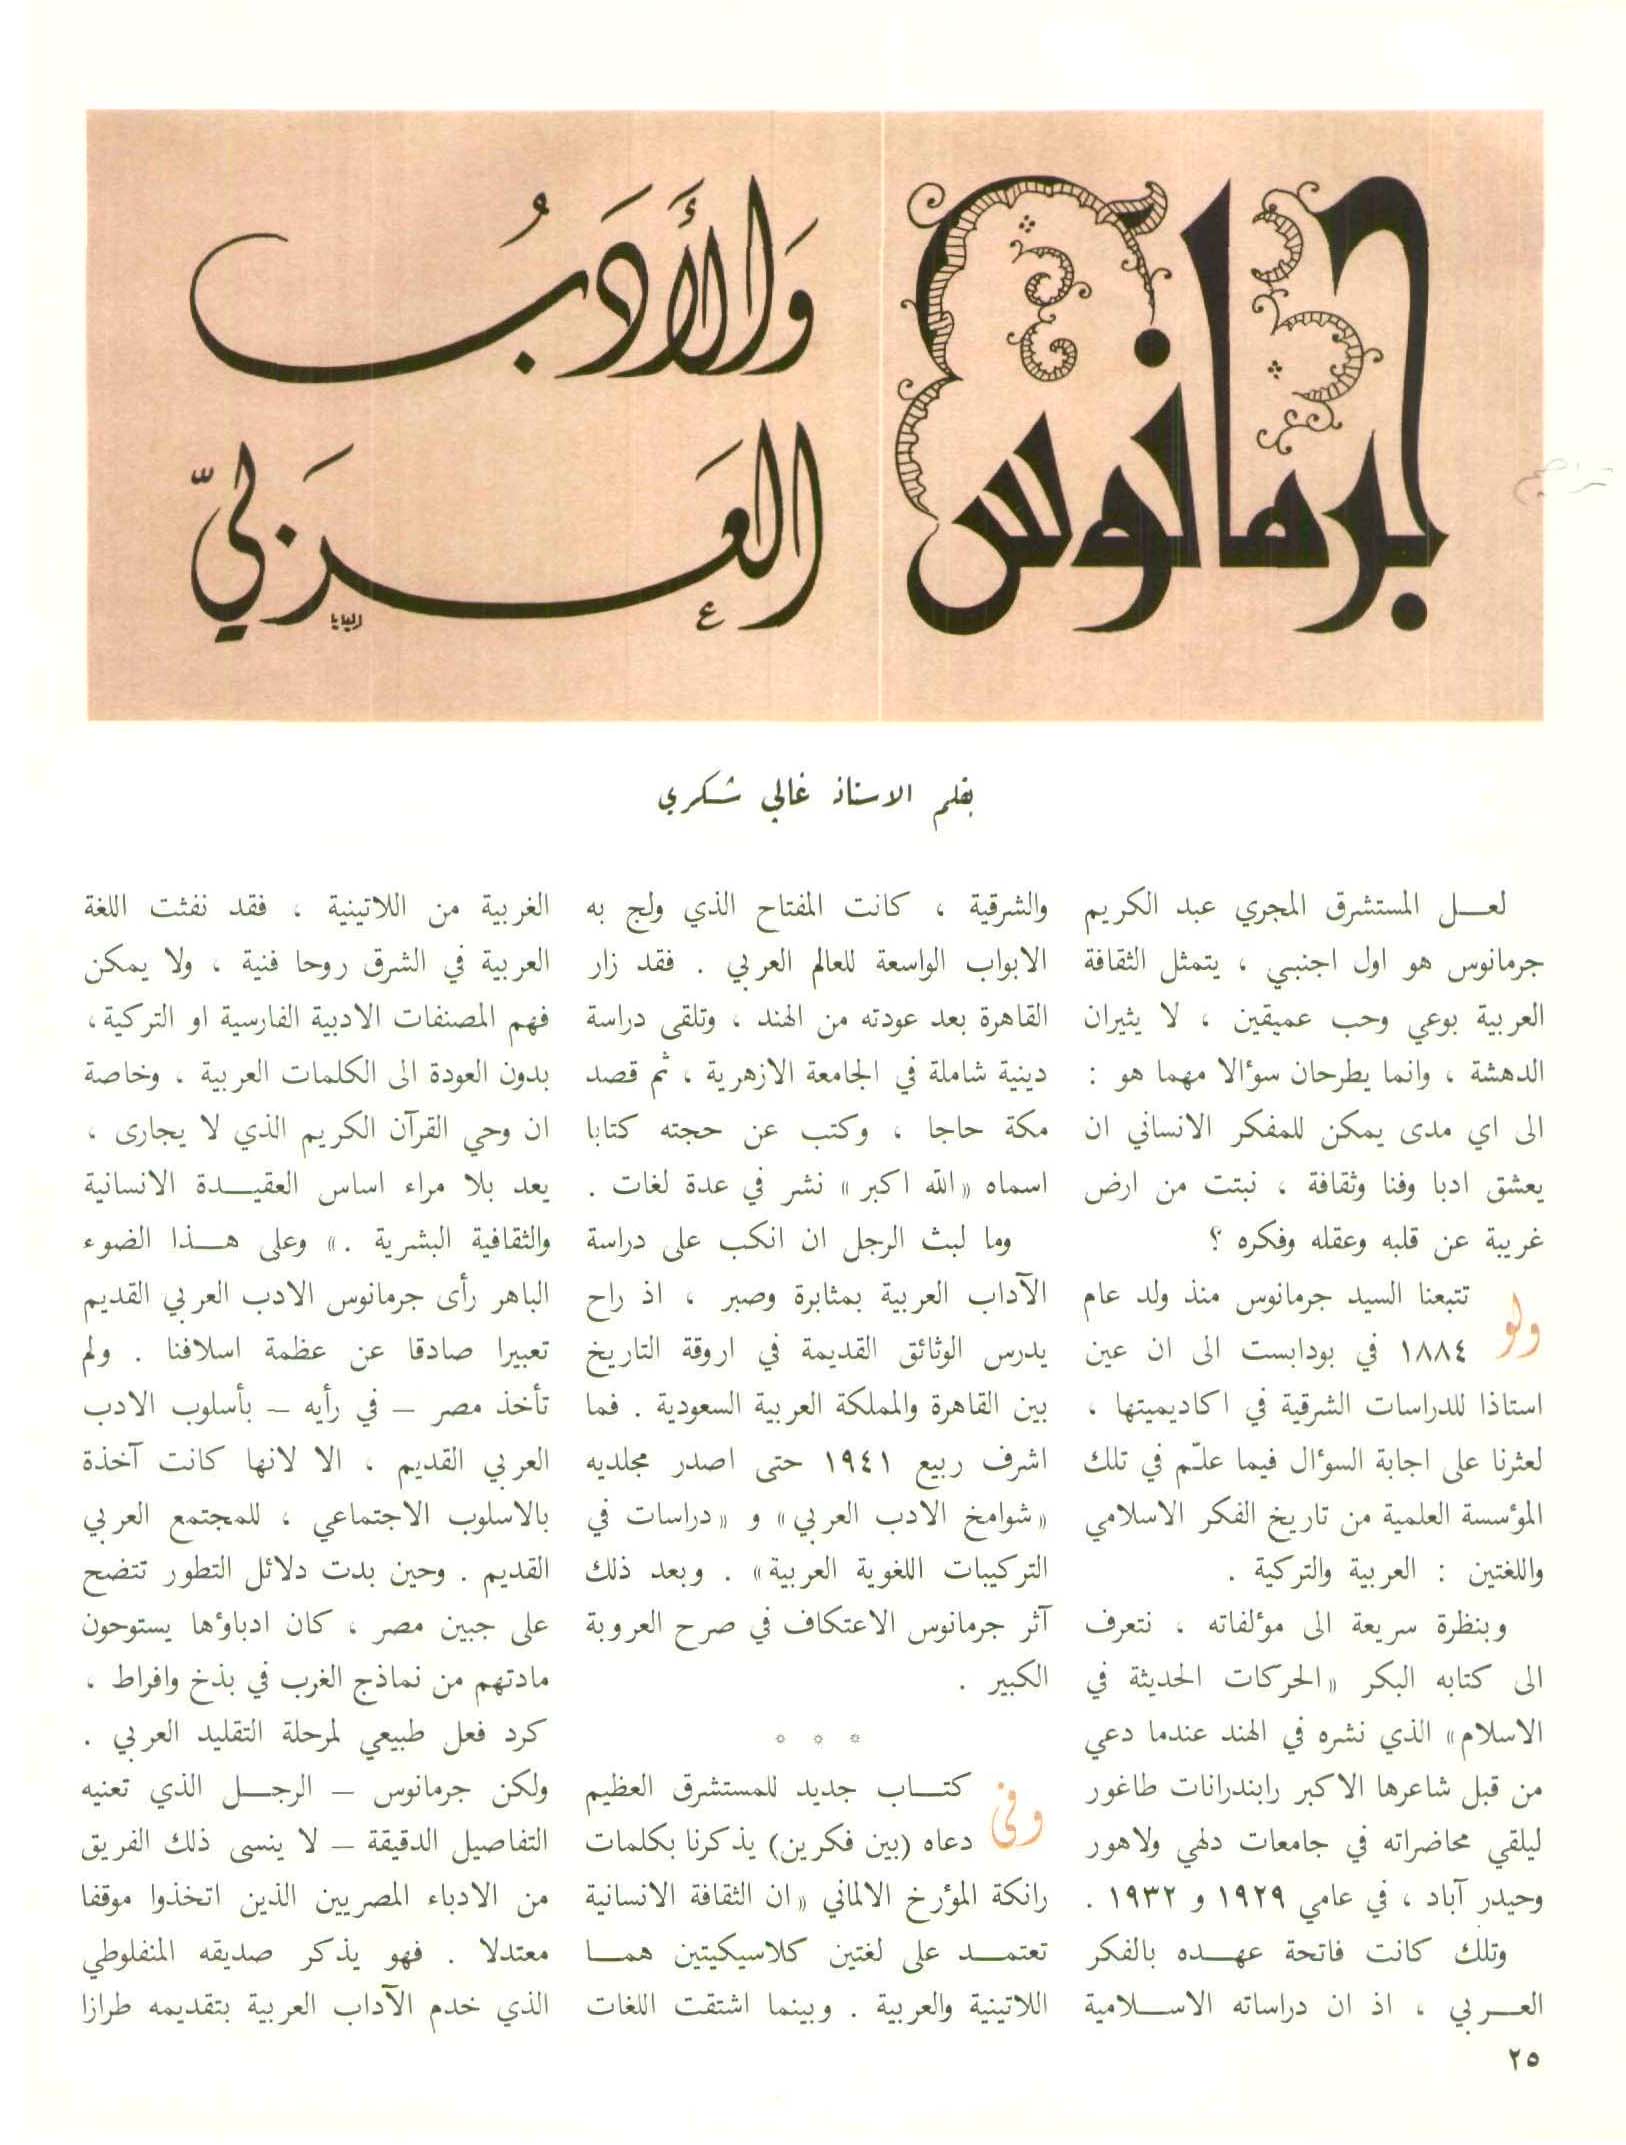 جرمانوس
وَالأَدَبُ
العَرَبيّ
بقلم الاستاذ غالي شكري
لعل المستشرق المجري عبد الكريم
جرمانوس هو اول اجنبي ، يتمثل الثقافة
العربية بوعي وحب عميقين ، لا يثيران
الدهشة ، وانما يطرحان سؤالا مهما هو :
الى اي مدى يمكن للمفكر الانساني ان
يعشق ادبا وفنا وثقافة ، نبتت من ارض
غريبة عن قلبه وعقله وفكره ؟
ولو تتبعنا السيد جرمانوس منذ ولد عام
١٨٨٤ في بودابست الى ان عين
استاذا للدراسات الشرقية في اكاديميتها ،
لعثرنا على اجابة السؤال فيما علّم في تلك
المؤسسة العلمية من تاريخ الفكر الاسلامي
واللغتين : العربية والتركية .
وبنظرة سريعة الى مؤلفاته ، نتعرف
الى كتابه البكر «الحركات الحديثة في
الاسلام» الذي نشره في الهند عندما دعي
من قبل شاعرها الاكبر رابندرانات طاغور
ليلقي محاضراته في جامعات دلهي ولاهور
وحيدر آباد ، في عامي ١٩٢٩ و ١٩٣٢ .
وتلك كانت فاتحة عهده بالفكر
العربي ، اذ ان دراساته الاسلامية
والشرقية ، كانت المفتاح الذي ولج به
الابواب الواسعة للعالم العربي . فقد زار
القاهرة بعد عودته من الهند ، وتلقى دراسة
دينية شاملة في الجامعة الازهرية ، ثم قصد
مكة حاجا ، وكتب عن حجته كتابا
اسماه «الله اكبر» نشر في عدة لغات .
وما لبث الرجل ان انكب على دراسة
الآداب العربية بمثابرة وصبر ، اذ راح
يدرس الوثائق القديمة في اروقة التاريخ
بين القاهرة والمملكة العربية السعودية . فما
اشرف ربيع ١٩٤١ حتى اصدر مجلديه
«شوامخ الادب العربي» و «دراسات في
التركيبات اللغوية العربية» . وبعد ذلك
آثر جرمانوس الاعتكاف في صرح العروبة
الكبير .
* * *
وفي كتاب جديد للمستشرق العظيم
دعاه (بين فكرين) يذكرنا بكلمات
رانكة المؤرخ الالماني «ان الثقافة الانسانية
تعتمد على لغتين كلاسيكيتين هما
اللاتينية والعربية . وبينما اشتقت اللغات
الغربية من اللاتينية ، فقد نفثت اللغة
العربية في الشرق روحا فنية ، ولا يمكن
فهم المصنفات الادبية الفارسية او التركية،
بدون العودة الى الكلمات العربية . وخاصة
ان وحي القرآن الكريم الذي لا يجارى ،
يعد بلا مراء اساس العقيدة الانسانية
والثقافية البشرية .» وعلى هذا الضوء
الباهر رأى جرمانوس الادب العربي القديم
تعبيرا صادقا عن عظمة اسلافنا . ولم
تأخذ مصر – في رأيه – بأسلوب الادب
العربي القديم ، الا لانها كانت آخذة
بالاسلوب الاجتماعي ، للمجتمع العربي
القديم . وحين بدت دلائل التطور تتضح
على جبين مصر ، كان ادباؤها يستوحون
مادتهم من نماذج الغرب في بذخ وافراط ،
كرد فعل طبيعي لمرحلة التقليد العربي .
ولكن جرمانوس – الرجل الذي تعنيه
التفاصيل الدقيقة – لا ينسى ذلك الفريق
من الادباء المصريين الذين اتخذوا موقفا
معتدلا . فهو يذكر صديقه المنفلوطي
الذي خدم الآداب العربية بتقديمه طرازا
٢٥